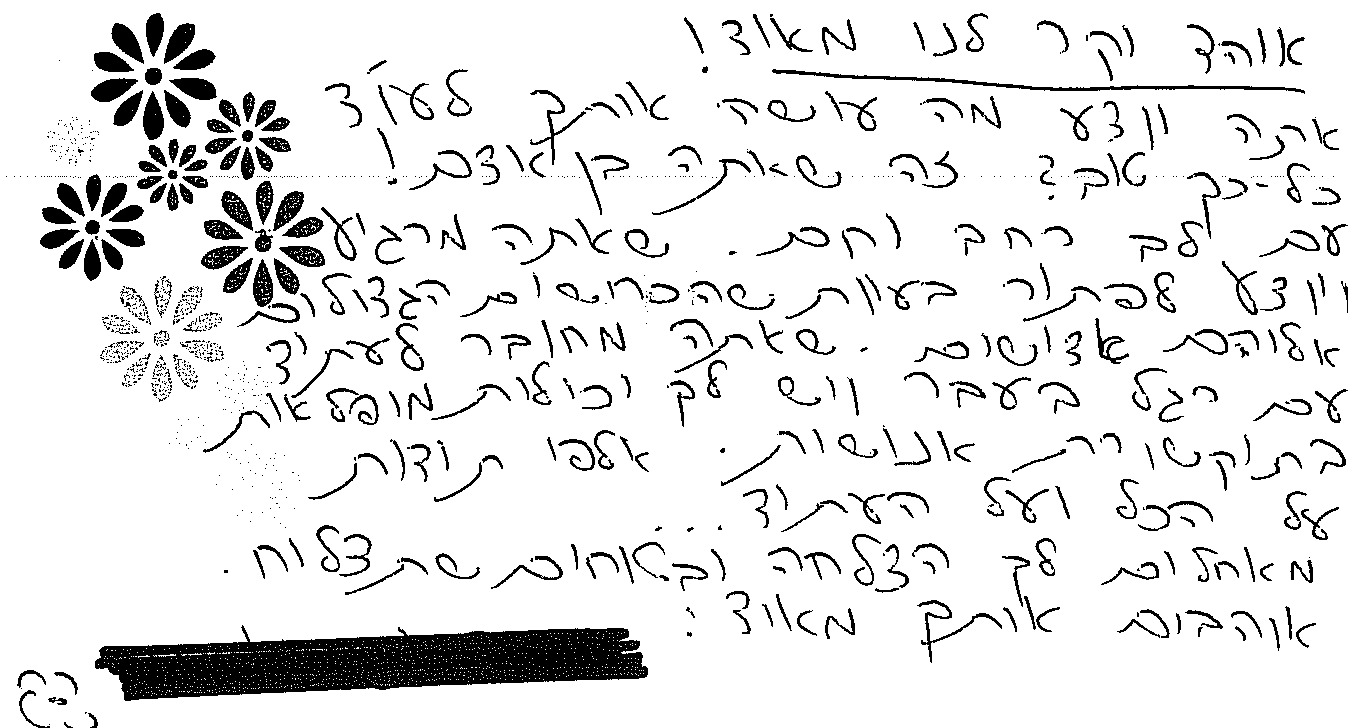 אוהד יקר לנו מאוד!
אתה יודע מה עושה אותך לעו"ד
כל-כך טוב? זה שאתה בן אדם!
עם לב רחב וחם. שאתה מרגיע
ויודע לפתור בעיות שהכרושים הגדולים
אלוהם אדושים. שאתה מחובר לעתיד
עם רגל בעבר ויש לך יכולות מופלאות
בתוקשורת אנושית. אלפי תודות
על הכל ועל העתיד...
מאחלים לך הצלחה ובטוחים שתצליח.
אוהבים אותך מאוד: